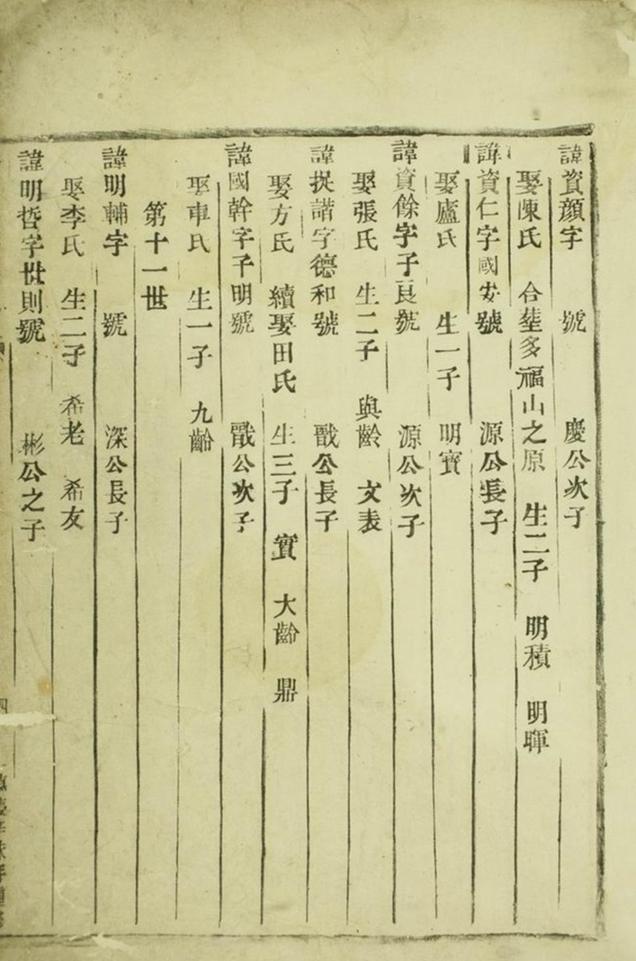 諱資顏字　號　慶公次子
娶陳氏　合塟多福山之原　生二子　明積　明暉
諱資仁字國安號　源公長子
娶盧氏　生一子　明寳
諱資餘字子良號　源公次子
娶張氏　生二子　與齡　文表
諱揆諧字德和號　戩公長子
娶方氏　續娶田氏　生三子　實　大齡　鼎
諱國幹字子明號　戩公次子
娶車氏　生一子　九齡
第十一世
諱明輔字　號　深公長子
娶李氏　生二子　希老　希友
諱明哲字世則號　彬公之子
四